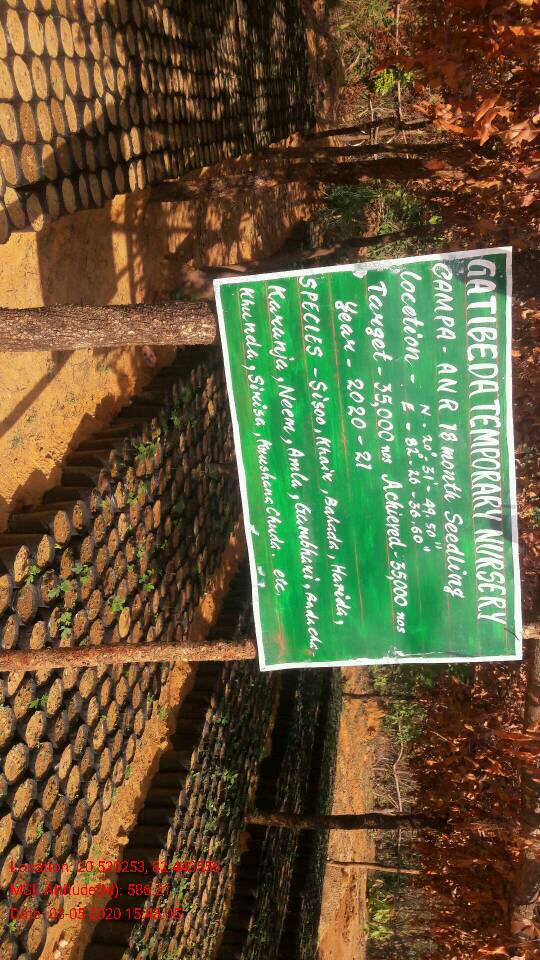 GATIBEDA TEMPORARY NURSERY
CAMPA - ANR 18 month Seedling
Location - N - 20°, 31'- 49.50"
E - 82 - 26 - 36.60"
Target - 35,000 nos Achieved - 35,000 nos
Year - 2020 - 21
SPECIES - Sisoo, Khair, Bahada, Harida,
Karanja, Neem, Amla, Gambhari, Bada cha-
kunda, Sirisa, Krushna chuda. etc.
Location: 20.520253, 82.443556
MSL Altitude(M): 586.21
Date: 03-05-2020 15:43:05